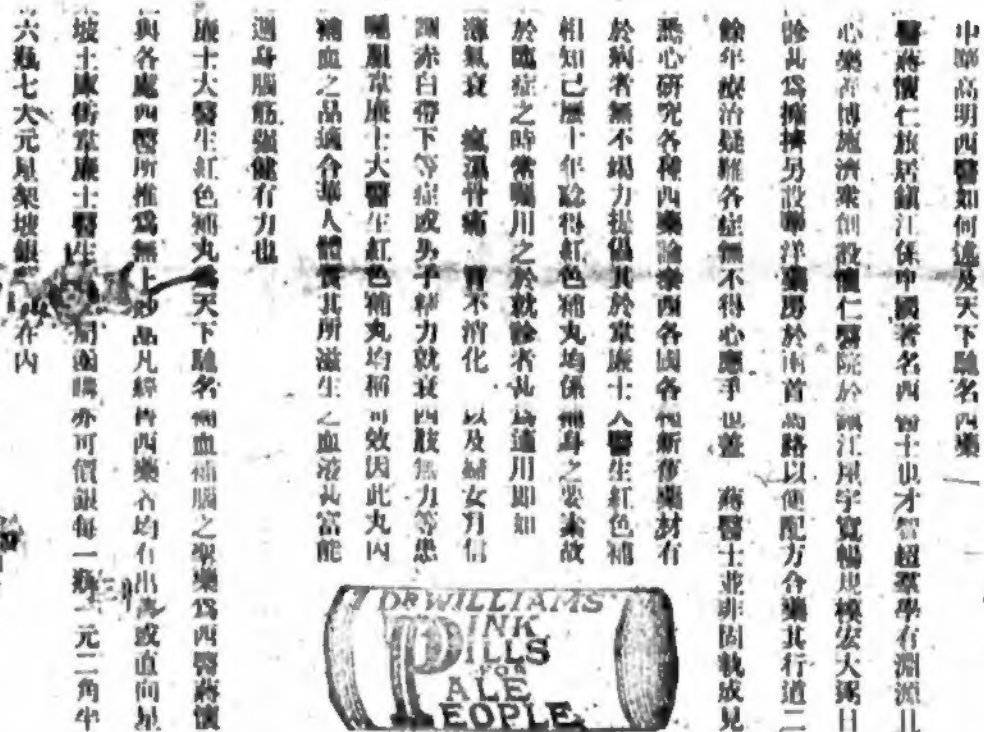 中華高明西醫如何述及天下馳名西藥
醫蔣懷仁族居鎮江係中國著名西醫士也才智超羣學有淵源且
心樂善博施濟衆創設懷仁醫院於鎮江屋宇寬暢規模宏大逐日
診甚爲擁擠另設華洋藥房於南首馬路以便配方合藥其行道二
餘年療治疑難各症無不得心應手也蓋 蔣醫士並非固執成見
悉心研究各種西藥論泰西各國各種新舊藥材有
於病者無不竭力提倡其於韋廉士大醫生紅色補
相知已歷十年診得紅色補丸均係補身之要素故
於臨症之時常囑用之於就診者甚爲適用即如
薄氣衰 瘋濕骨痛 胃不消化 以及婦女月信
調赤白帶下等症或男子精力就衰四肢無力等患
囑服韋廉士大醫生紅色補丸均稱可效因此丸內
補血之品適合華人體質其所滋生之血液甚富能
週身腦筋強健有力也
廉士大醫生紅色補丸爲天下馳名補血補腦之聖藥爲西醫蔣懷
與各處西醫所推爲無上妙品凡經售西藥者均有出售或直向星
坡土庫街韋廉士醫生 局函購亦可價銀每一瓶一元二角半
六瓶七大元星架坡銀 在內
DR WILLIAMS'
PINK
PILLS
FOR
ALE
PEOPLE